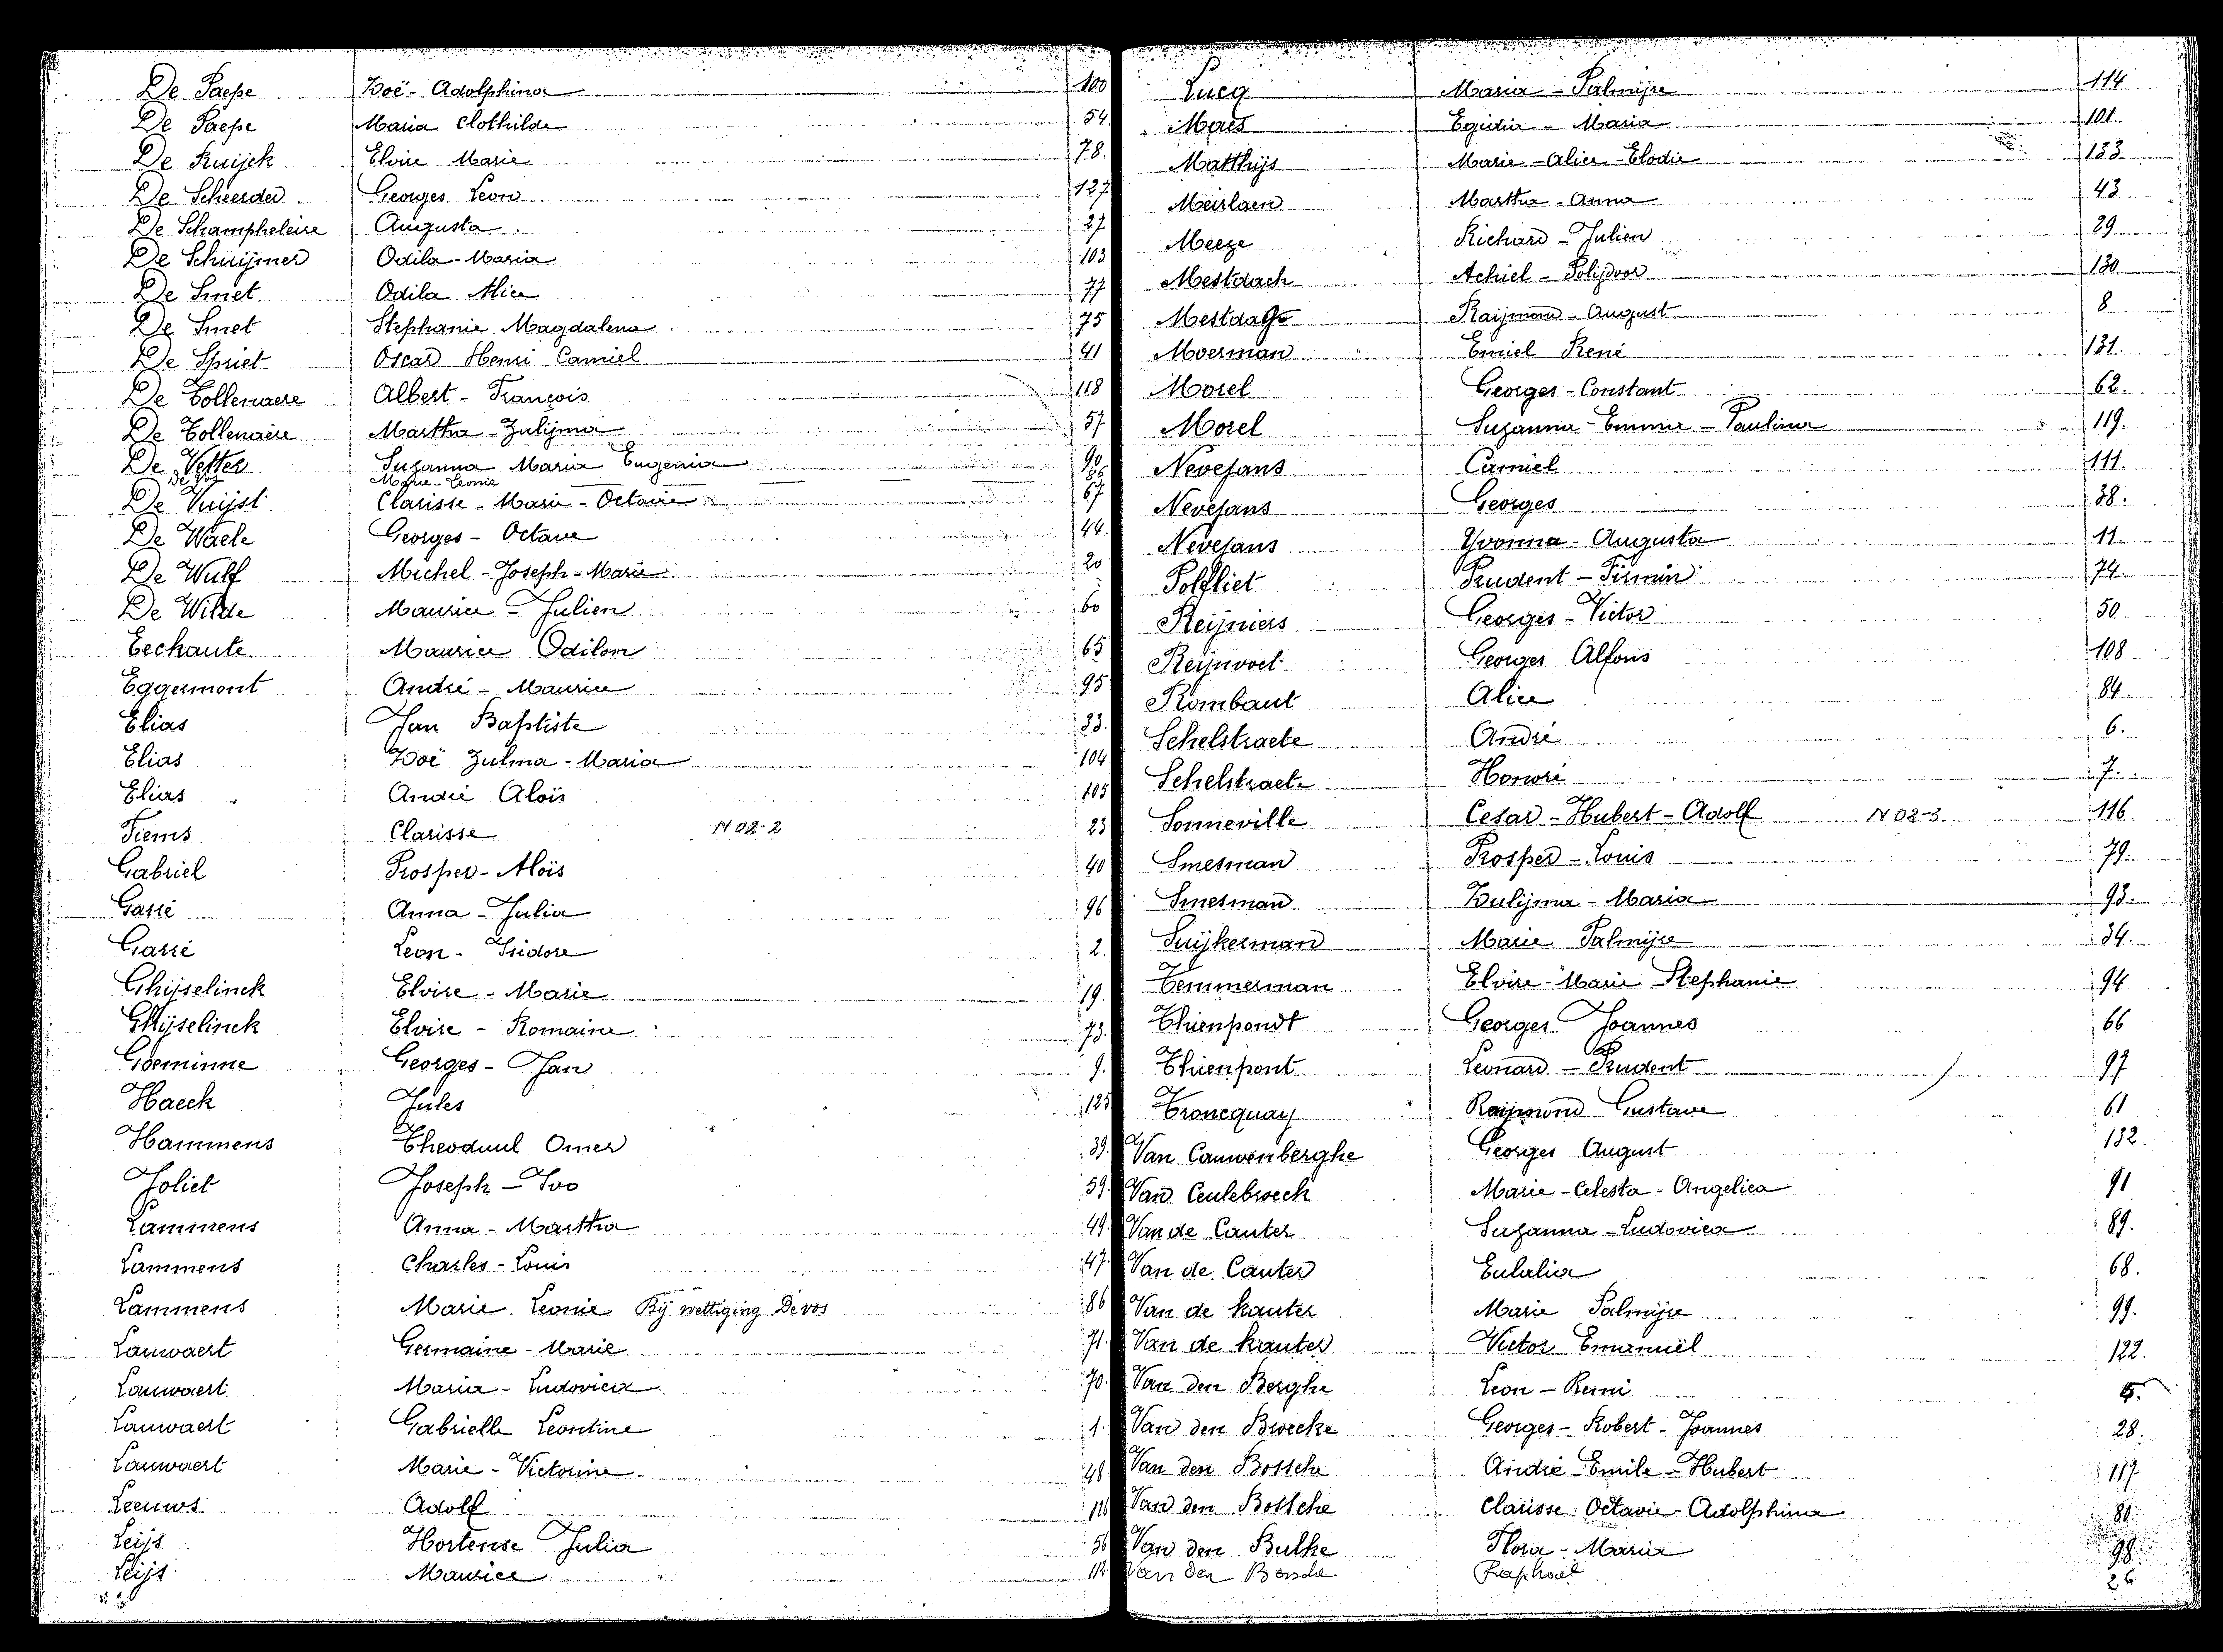 De Paepe Zoë - Adolphina 100
De Paepe Maria Clothilde 54
De Ruijck Elvire Marie 78.
De Scheerder Georges Leon 127
De Schampheleire Augusta 27
De Schuijmer Odila - Maria 103
De Smet Odila Alice 77
De Smet Stephanie Magdalena 75
De Spriet Oscar Henri Camiel 41
De Tollenaere Albert - François 118
De Tollenaere Martha - Zulijma 57
De Vetter Suzanna Maria Eugenia 90
De Vos Marie - Leonie 86
De Vuijst Clarisse - Marie - Octavie 67
De Waele Georges - Octave 44
De Wulf Michel - Joseph - Marie 20
De Wilde Maurice - Julien 60
Eechaute Maurice Odilon 65
Eggermont André - Maurice 95
Elias Jan Baptiste 33.
Elias Zoë Zulma - Maria 104
Elias André Aloïs 105
Fiems Clarisse N 02-2 23
Gabriel Prosper - Aloïs 40
Garré Anna - Julia 96
Garré Leon - Isidore 2.
Ghijselinck Elvire - Marie 19.
Ghijselinck Elvire - Romaine 73.
Goeminne Georges - Jan 9.
Haeck Jules 125
Hammens Theoduul Omer 39.
Joliet Joseph - Ivo 59.
Lammens Anna - Martha 49.
Lammens Charles - Louis 47.
Lammens Marie Leonie Bij wettiging De vos 86
Lauwaert Germaine - Marie 71.
Lauwaert Maria - Ludovica 70.
Lauwaert Gabrielle Leontine 1.
Lauwaert Marie - Victorine 48
Leeuws Adolf 126
Leijs Hortense Julia 56
Leijs Maurice 112
Lucq Maria - Palmijre 114
Maes Egidia - Maria 101.
Matthijs Marie - Alice - Elodie 133
Meirlaen Martha - Anna 43
Meeze Richard - Julien 29
Mestdach Achiel - Polijdoor 130
Mestdagh Raijmond - August 8
Moerman Emiel René 131.
Morel Georges - Constant 62.
Morel Suzanna - Emma - Paulina 119.
Nevejans Camiel 111.
Nevejans Georges 38.
Nevejans Yvonna - Augusta 11.
Polfliet Prudent - Firmin 74.
Reijniers Georges - Victor 50
Reijnvoet Georges Alfons 108
Rombaut Alice 84.
Schelstraete André 6.
Schelstraete Honoré 7.
Sonneville Cesar - Hubert - Adolf N 02-3 116.
Smesman Prosper - Louis 79.
Smesman Zulijma - Maria 93.
Suijkerman Marie Palmijre 34.
Temmerman Elvire - Marie - Stephanie 94
Thienpondt Georges Joannes 66
Thienpont Leonard - Prudent 97
Troncquay Raijmond Gustave 61
Van Cauwenberghe Georges August 132.
Van Ceulebroeck Marie - Celesta - Angelica 91
Van de Cauter Suzanna - Ludovica 89.
Van de Cauter Eulalia 68.
Van de kauter Marie Palmijre 99.
Van de kauter Victor Emanuël 122.
Van den Berghe Leon - Remi 5.
Van den Broecke Georges - Robert - Joannes 28.
Van den Bossche André - Emile - Hubert 117
Van den Bossche Clarisse - Octavie - Adolphina 80
Van den Bulke Flora - Maria 98.
Van den Raphael 26